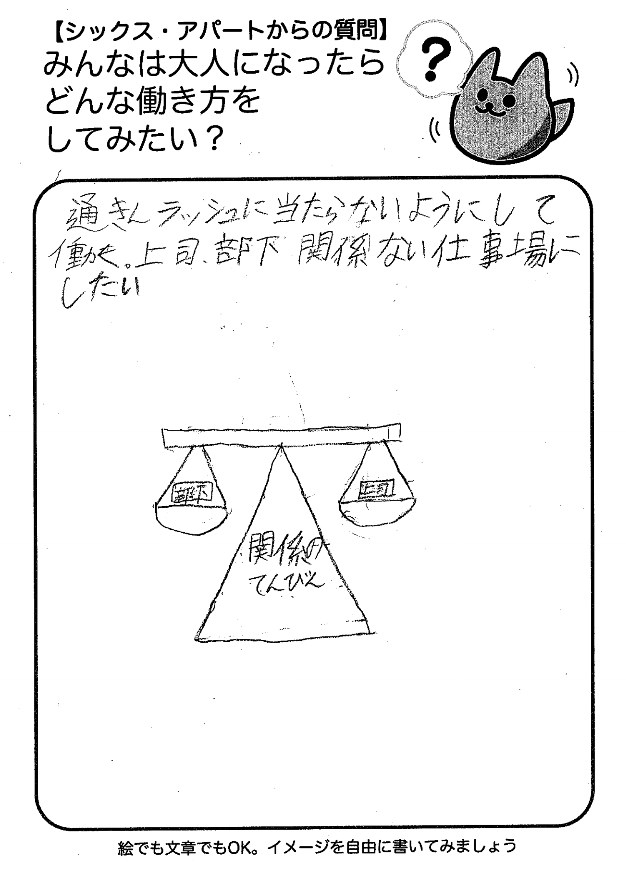 【シックス・アパートからの質問】
みんなは大人になったら
どんな働き方を
してみたい？
?
通きんラッシュに当たらないようにして
働き。上司、部下 関係ない仕事場に
したい
部下
上司
関係の
てんびん
絵でも文章でもOK。イメージを自由に書いてみましょう